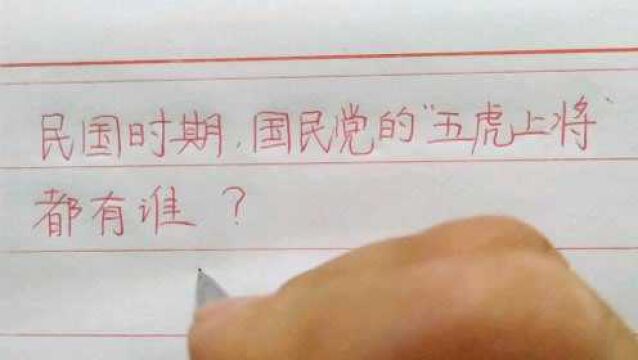 民国时期,国民党的"五虎上将"
都有谁?